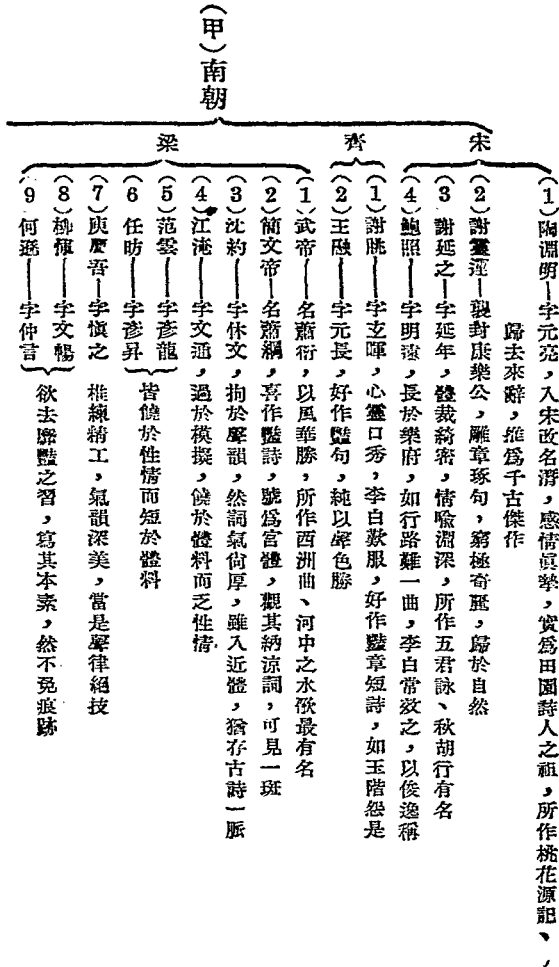 (甲)南朝
宋
(1)陶淵明—字元亮，入宋改名潛，感情眞摯，實爲田園詩人之祖，所作桃花源記、
歸去來辭，推爲千古傑作
(2)謝靈運—襲封康樂公，雕章琢句，窮極奇麗，歸於自然
(3)謝延之—字延年，體裁綺密，情喩淵深，所作五君詠、秋胡行有名
(4)鮑照—字明遠，長於樂府，如行路難一曲，李白常效之，以俊逸稱
齊
(1)謝朓—字玄暉，心靈口秀，李白歎服，好作豔章短詩，如玉階怨是
(2)王融—字元長，好作豔句，純以聲色勝
梁
(1)武帝—名蕭衍，以風華勝，所作西洲曲、河中之水歌最有名
(2)簡文帝—名蕭綱，喜作豔詩，號爲宮體，觀其納涼詞，可見一斑
(3)沈約—字休文，拘於聲韻，然詞氣尙厚，雖入近體，猶存古詩一脈
(4)江淹—字文通，過於模擬，饒於體料而乏性情
(5)范雲—字彥龍
(6)任昉—字彥昇
皆饒於性情而短於體料
(7)庾肩吾—字愼之　椎練精工，氣韻深美，當是聲律絕技
(8)柳惲—字文暢
(9)何遜—字仲言
欲去靡豔之習，寫其本素，然不免痕跡